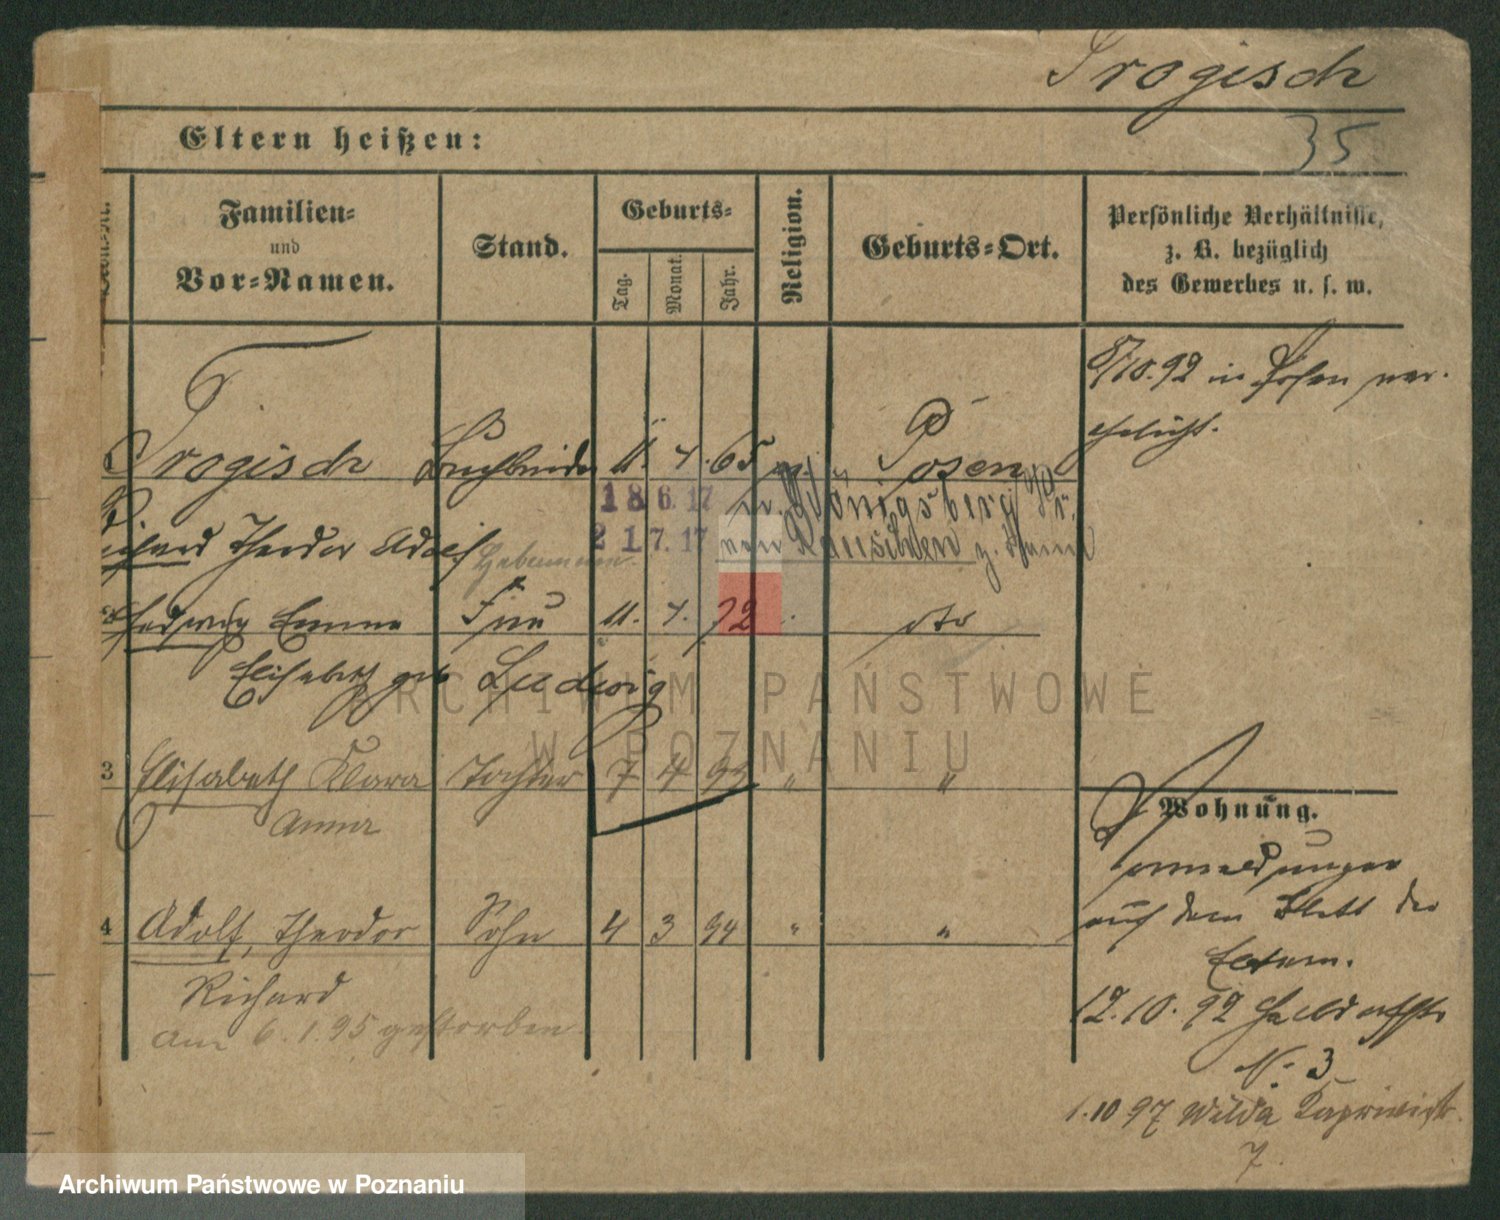 Trogisch
35
Eltern heißen:
Familien=
und
Vor=Namen.
Stand.
Geburts=
Tag.
Monat.
Jahr.
Religion.
Geburts=Ort.
Persönliche Verhältnisse,
z. B. bezüglich
des Gewerbes u. s. w.
8/10.92 in Posen ver-
ehelicht.
1 Trogisch Buchbinder 11. 4. 65 Posen
18 6. 17 Königsberg Pr.
Richard Theodor Adolf Hebamme
21 7. 17 von Rauschen z.
2 Hedwig Emma Frau 11. 4. 72 dto
Elisabeth geb Ludwig
ARCHIWUM PAŃSTWOWE
W POZNANIU
3 Elisabeth Klara Tochter 7 4 93 " "
Anna
4 Adolf, Theodor Sohn 4 3 94 " "
Richard
am 6. 1. 95 gestorben
Wohnung.
Vormeldungen
auf dem Blatt der
Eltern.
12. 10. 92 Halldorfstr
No. 3
1. 10 97 Wilda Kaprivistr.
7.
Archiwum Państwowe w Poznaniu